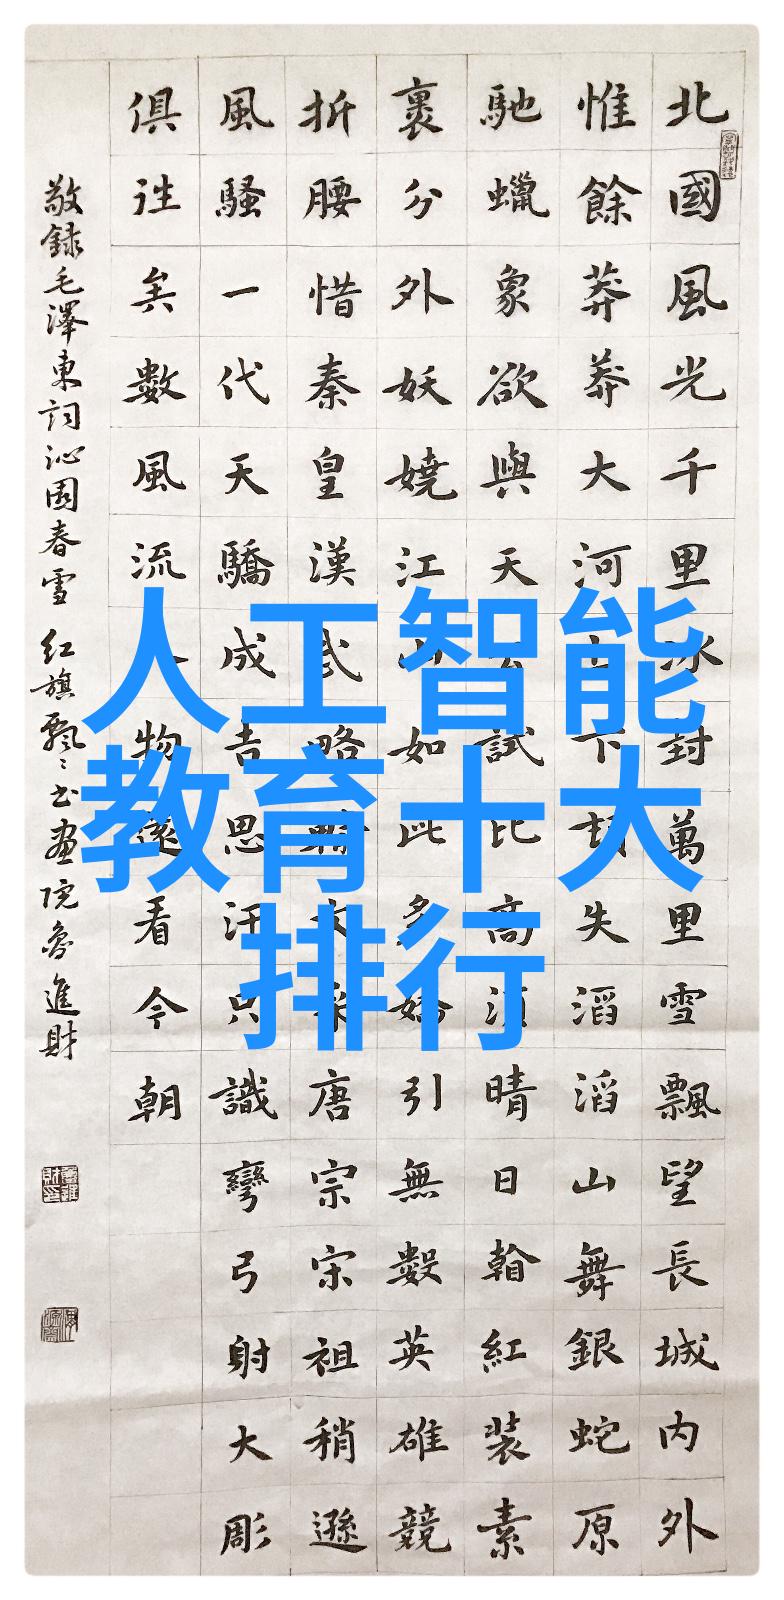 人工智能
教育十大
排行
北國風光千里冰封萬里雪飄望長城内外
惟餘莽莽大河上下頓失滔滔山舞銀蛇原
馳蠟象欲與天公試比高須晴日紅裝素
裹分外妖嬈江山如此多嬌引無數英雄競
折腰惜秦皇漢武略輸文采唐宗宋祖稍遜
風騷一代天驕成吉思汗只識彎弓射大彫
俱往矣數風流人物還看今朝
敬録毛澤東詞沁園春雪 红旗飄〻书画院魯進財